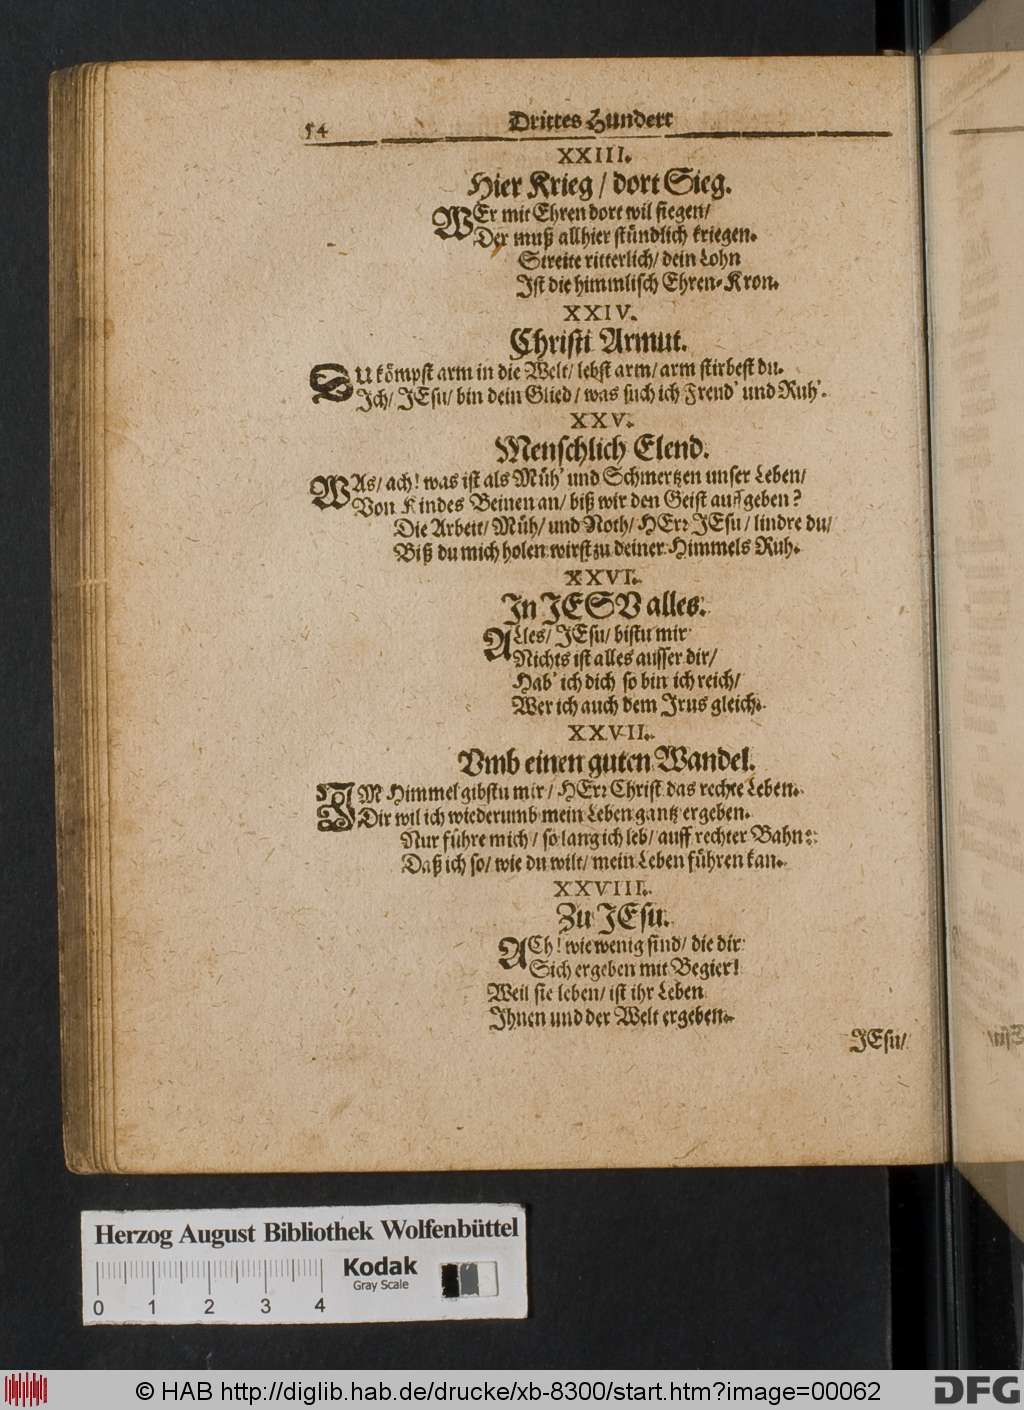 54
Drittes Hundert
XXIII.
Hier Krieg / dort Sieg.
WEr mit Ehren dort wil siegen/
Der muß allhier stündlich kriegen.
Streite ritterlich/ dein Lohn
Ist die himmlisch Ehren-Kron.
XXIV.
Christi Armut.
DU kömpst arm in die Welt/ lebst arm/ arm stirbest du.
Ich/ JEsu/ bin dein Glied/ was such ich Freud' und Ruh'.
XXV.
Menschlich Elend.
WAs/ ach! was ist als Müh' und Schmertzen unser Leben/
Von Kindes Beinen an/ biß wir den Geist auffgeben?
Die Arbeit/ Müh/ und Noth/ HErr JEsu/ lindre du/
Biß du mich holen wirst zu deiner Himmels Ruh.
XXVI.
In JESV alles.
ALles/ JEsu/ bistu mir
Nichts ist alles ausser dir/
Hab' ich dich so bin ich reich/
Wer ich auch dem Irus gleich.
XXVII.
Vmb einen guten Wandel.
IM Himmel gibstu mir/ HErr Christ das rechte Leben.
Dir wil ich wiederumb mein Leben gantz ergeben.
Nur führe mich/ so lang ich leb/ auff rechter Bahn:
Daß ich so/ wie du wilt/ mein Leben führen kan.
XXVIII.
Zu JEsu.
ACh! wie wenig sind/ die dir
Sich ergeben mit Begier!
Weil sie leben/ ist ihr Leben
Ihnen und der Welt ergeben.
JEsu/
Herzog August Bibliothek Wolfenbüttel
Kodak
Gray Scale
0 1 2 3 4
© HAB http://diglib.hab.de/drucke/xb-8300/start.htm?image=00062
DFG